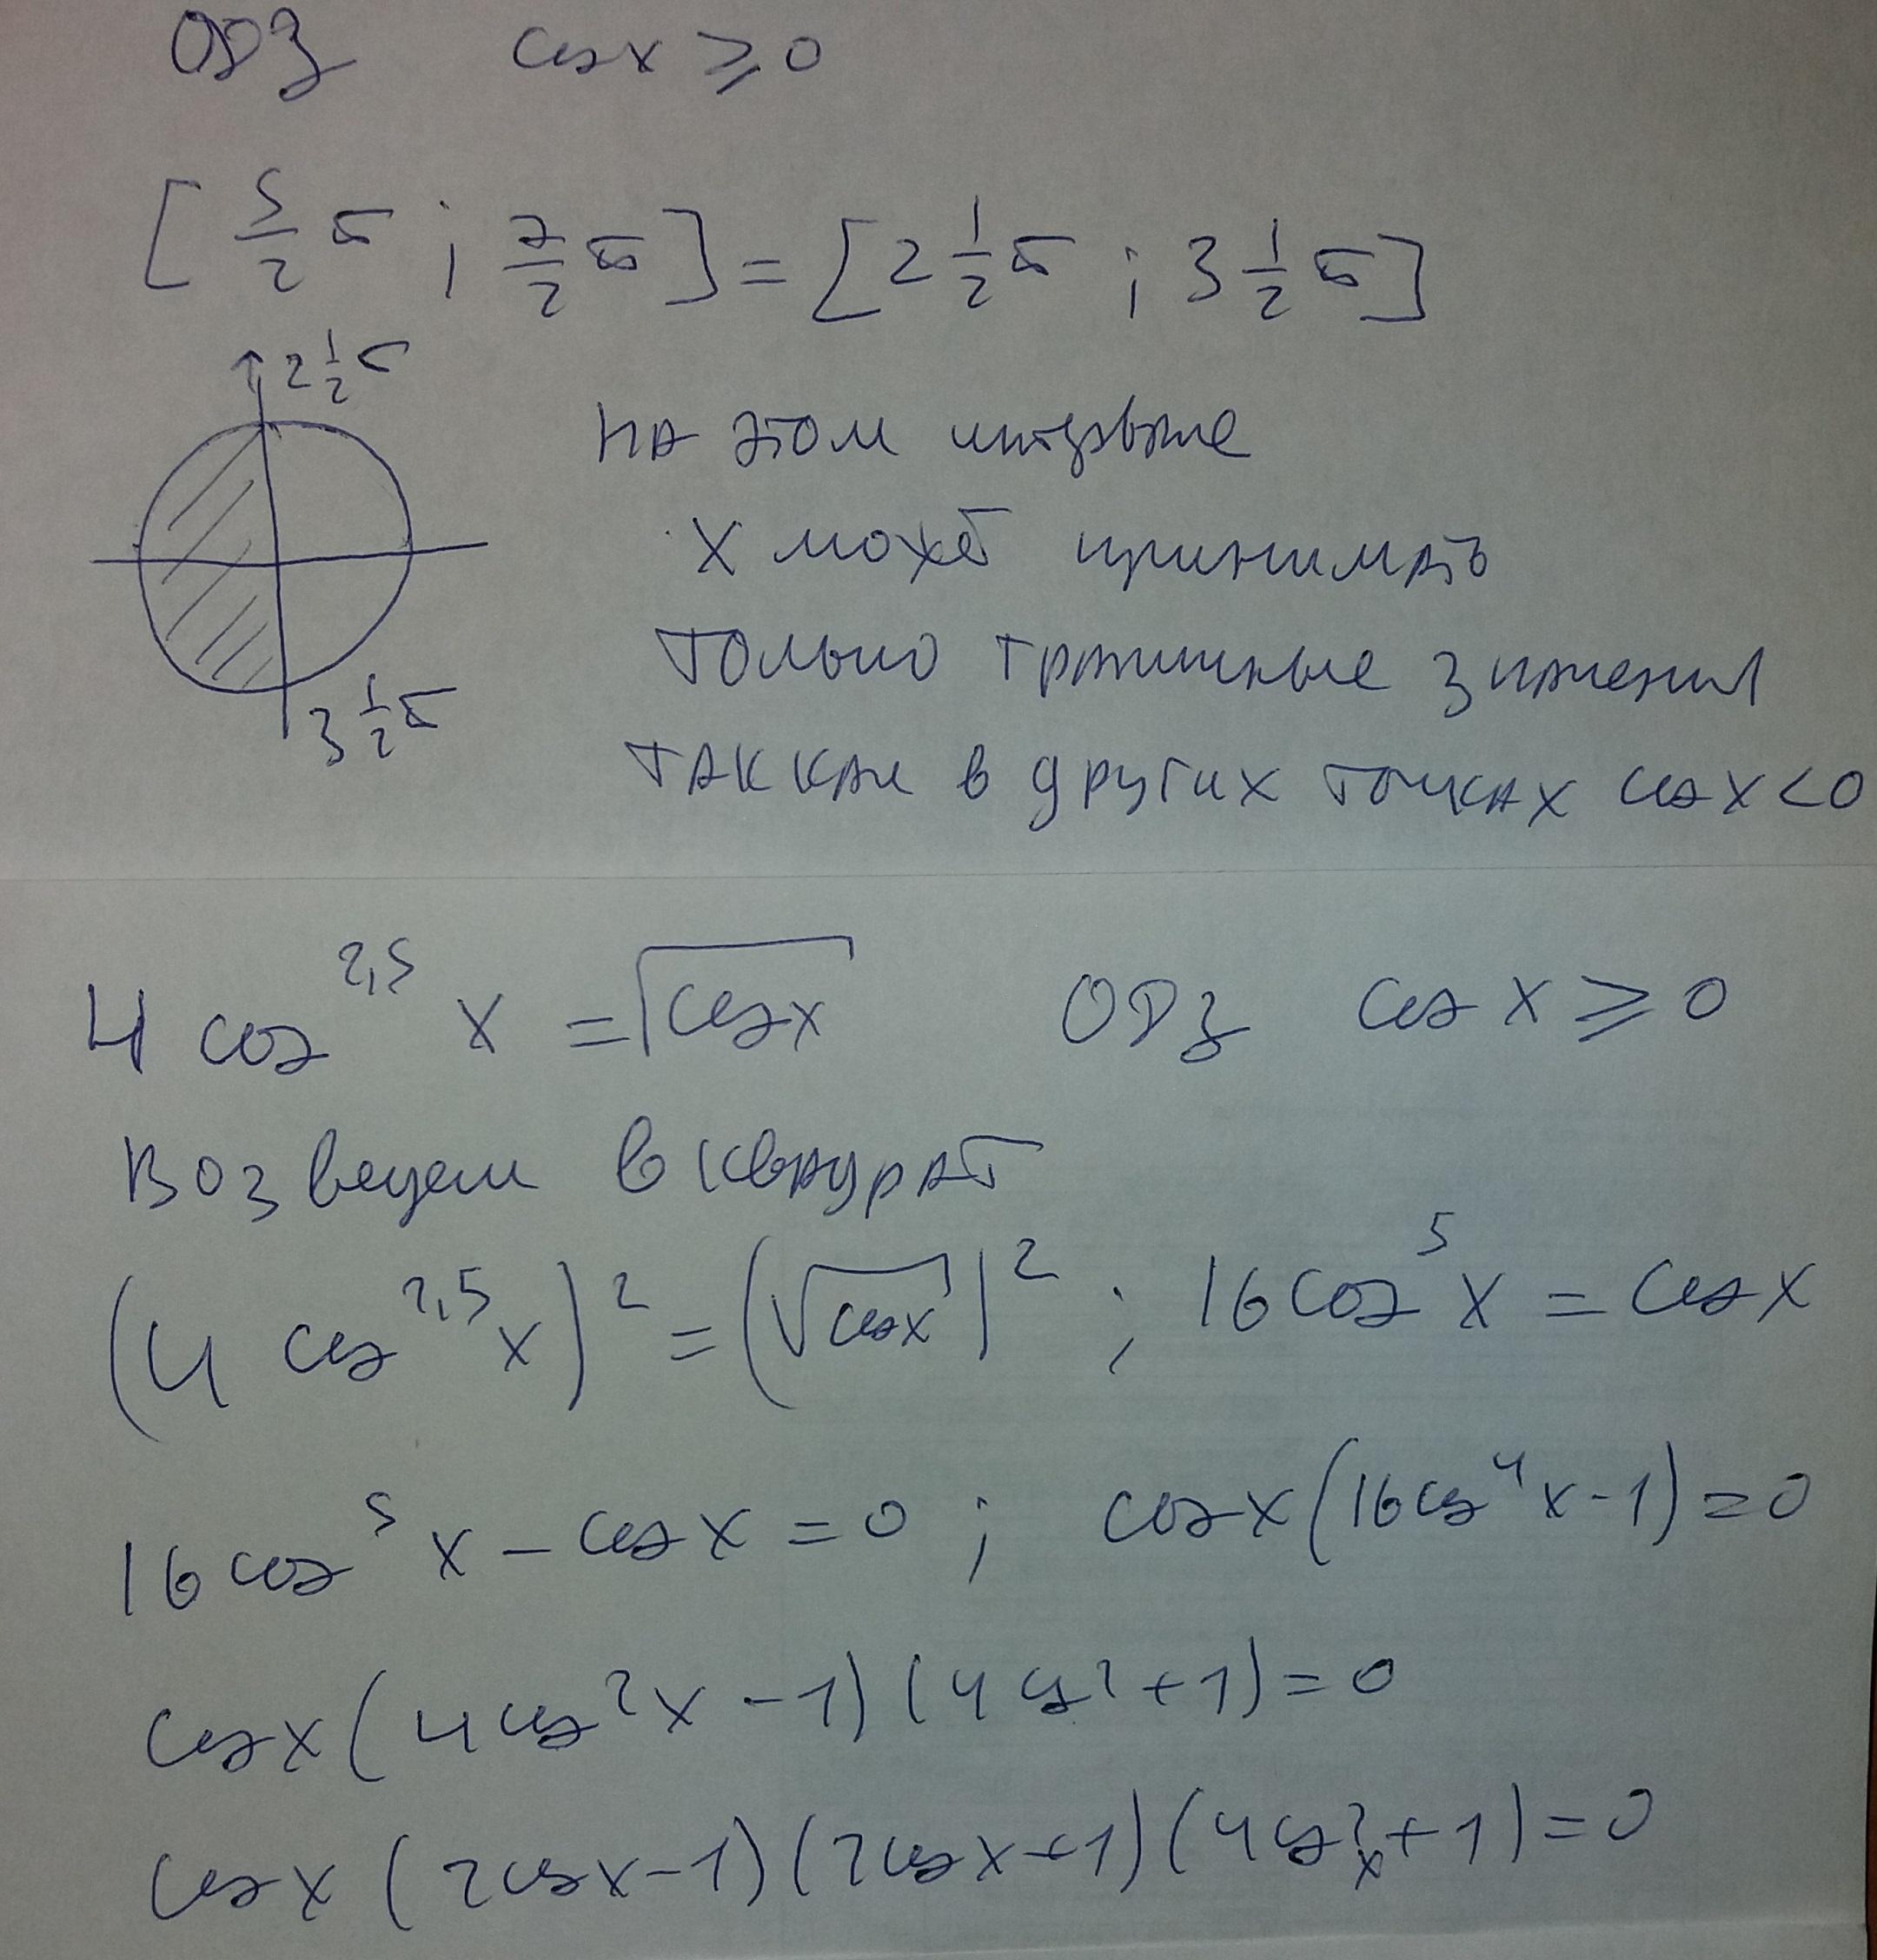 ОДЗ cos x ≥ 0
[5/2 π ; 7/2 π] = [2 1/2 π ; 3 1/2 π]
2 1/2 π
на этом интервале
x может принимать
только граничные значения
3 1/2 π
так как в других точках cos x < 0
4 cos^2,5 x = √cos x ОДЗ cos x ≥ 0
возведем в квадрат
(4 cos^2,5 x)^2 = (√cos x)^2 ; 16 cos^5 x = cos x
16 cos^5 x - cos x = 0 ; cos x (16 cos^4 x - 1) = 0
cos x (4 cos^2 x - 1) (4 cos^2 + 1) = 0
cos x (2 cos x - 1) (2 cos x + 1) (4 cos^2 x + 1) = 0